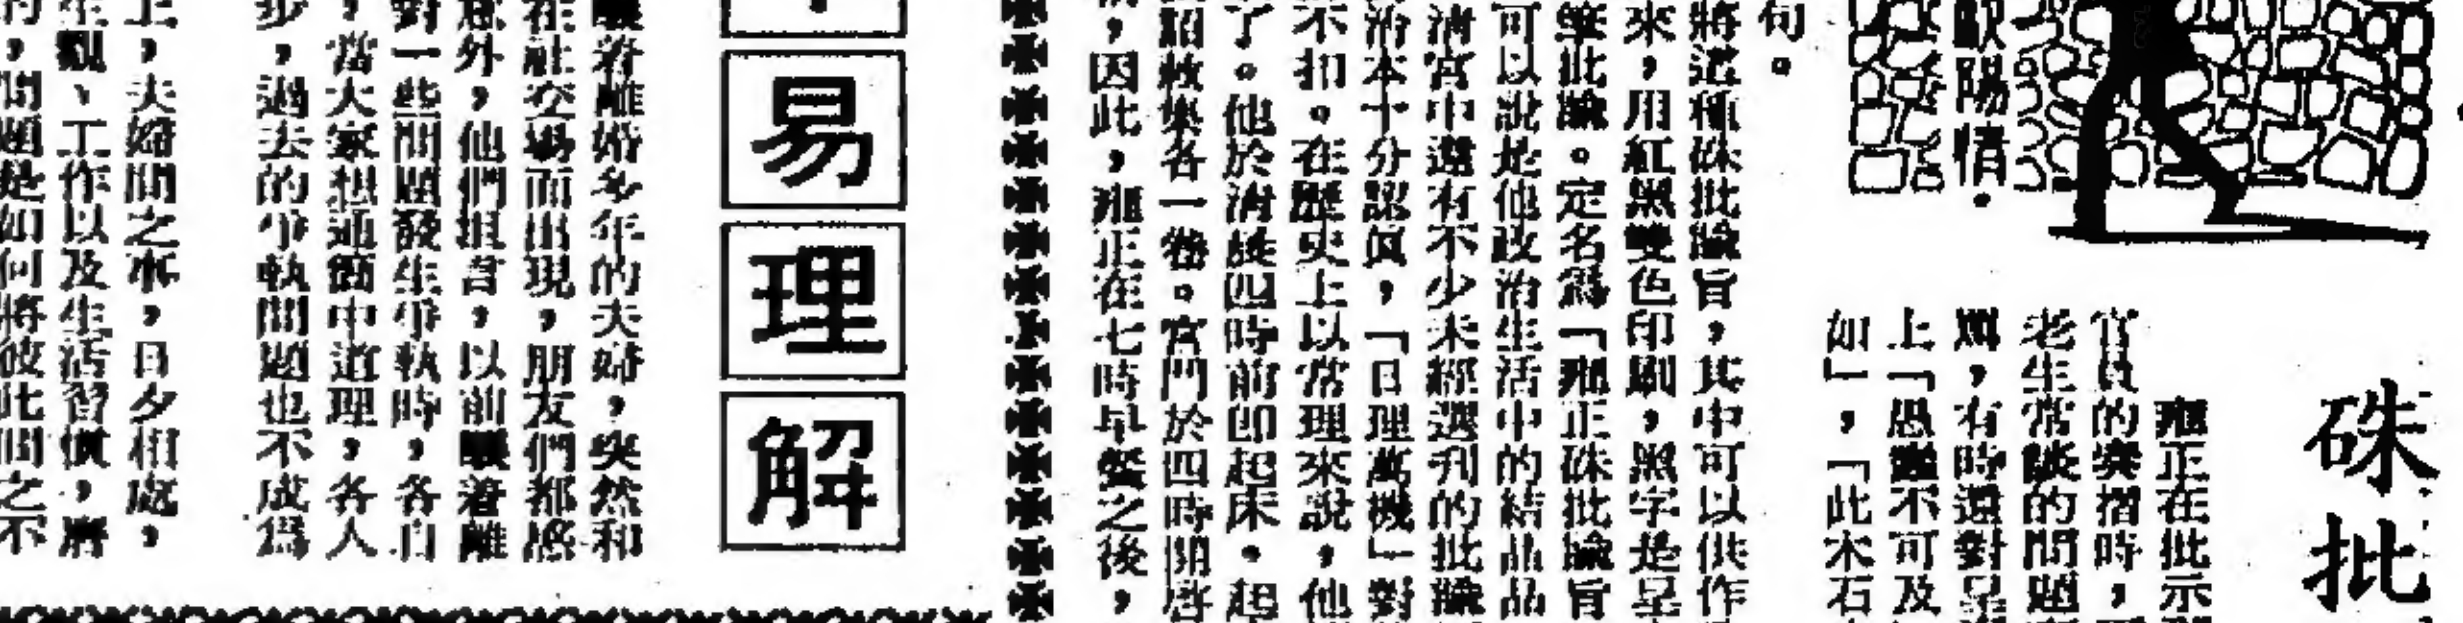 硃批
雍正在批示
官員的奏摺時，
老生常談的問題
，有時還對呈
上「愚蠢不可及
如」，「此木石
歐陽情．
句。
將這種硃批諭旨，其中可以供作
來，用紅黑雙色印刷，黑字是呈
筆批諭。定名爲「雍正硃批諭旨
可以說是他政治生活中的結晶品
清宮中還有不少未經選刋的批諭
治本十分認眞，「日理萬機」對
不扣。在歷史上以常理來說，他
了。他於淸晨四時前卽起床．起
詔敕集各一卷。宮門於四時開啓
，因此，雍正在七時早餐之後，
易理解
着離婚多年的夫婦，突然和
在社交場面出現，朋友們都感
意外，他們坦言，以前曠着離
對一些問題發生爭執時，各自
，當大家想通箇中道理，各人
步，過去的爭執問題也不成爲
上，夫婦間之事，日夕相處，
生觀、工作以及生活習慣，磨
的，問題是如何將彼此間之不